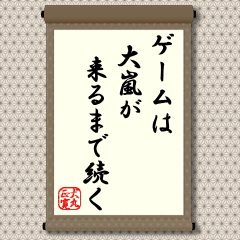 ゲームは
大嵐が
来るまで続く
大丸
正寛